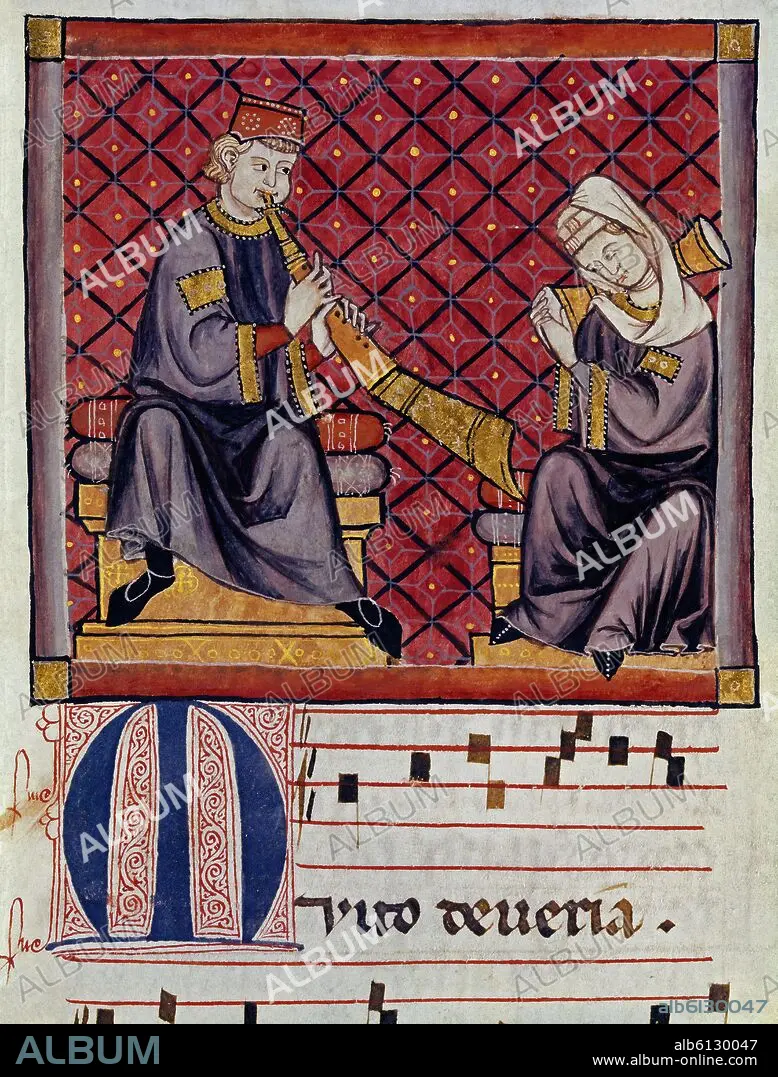 MUito deueria .
alb6130047
ALBUM
alb6130047
www.album-online.com